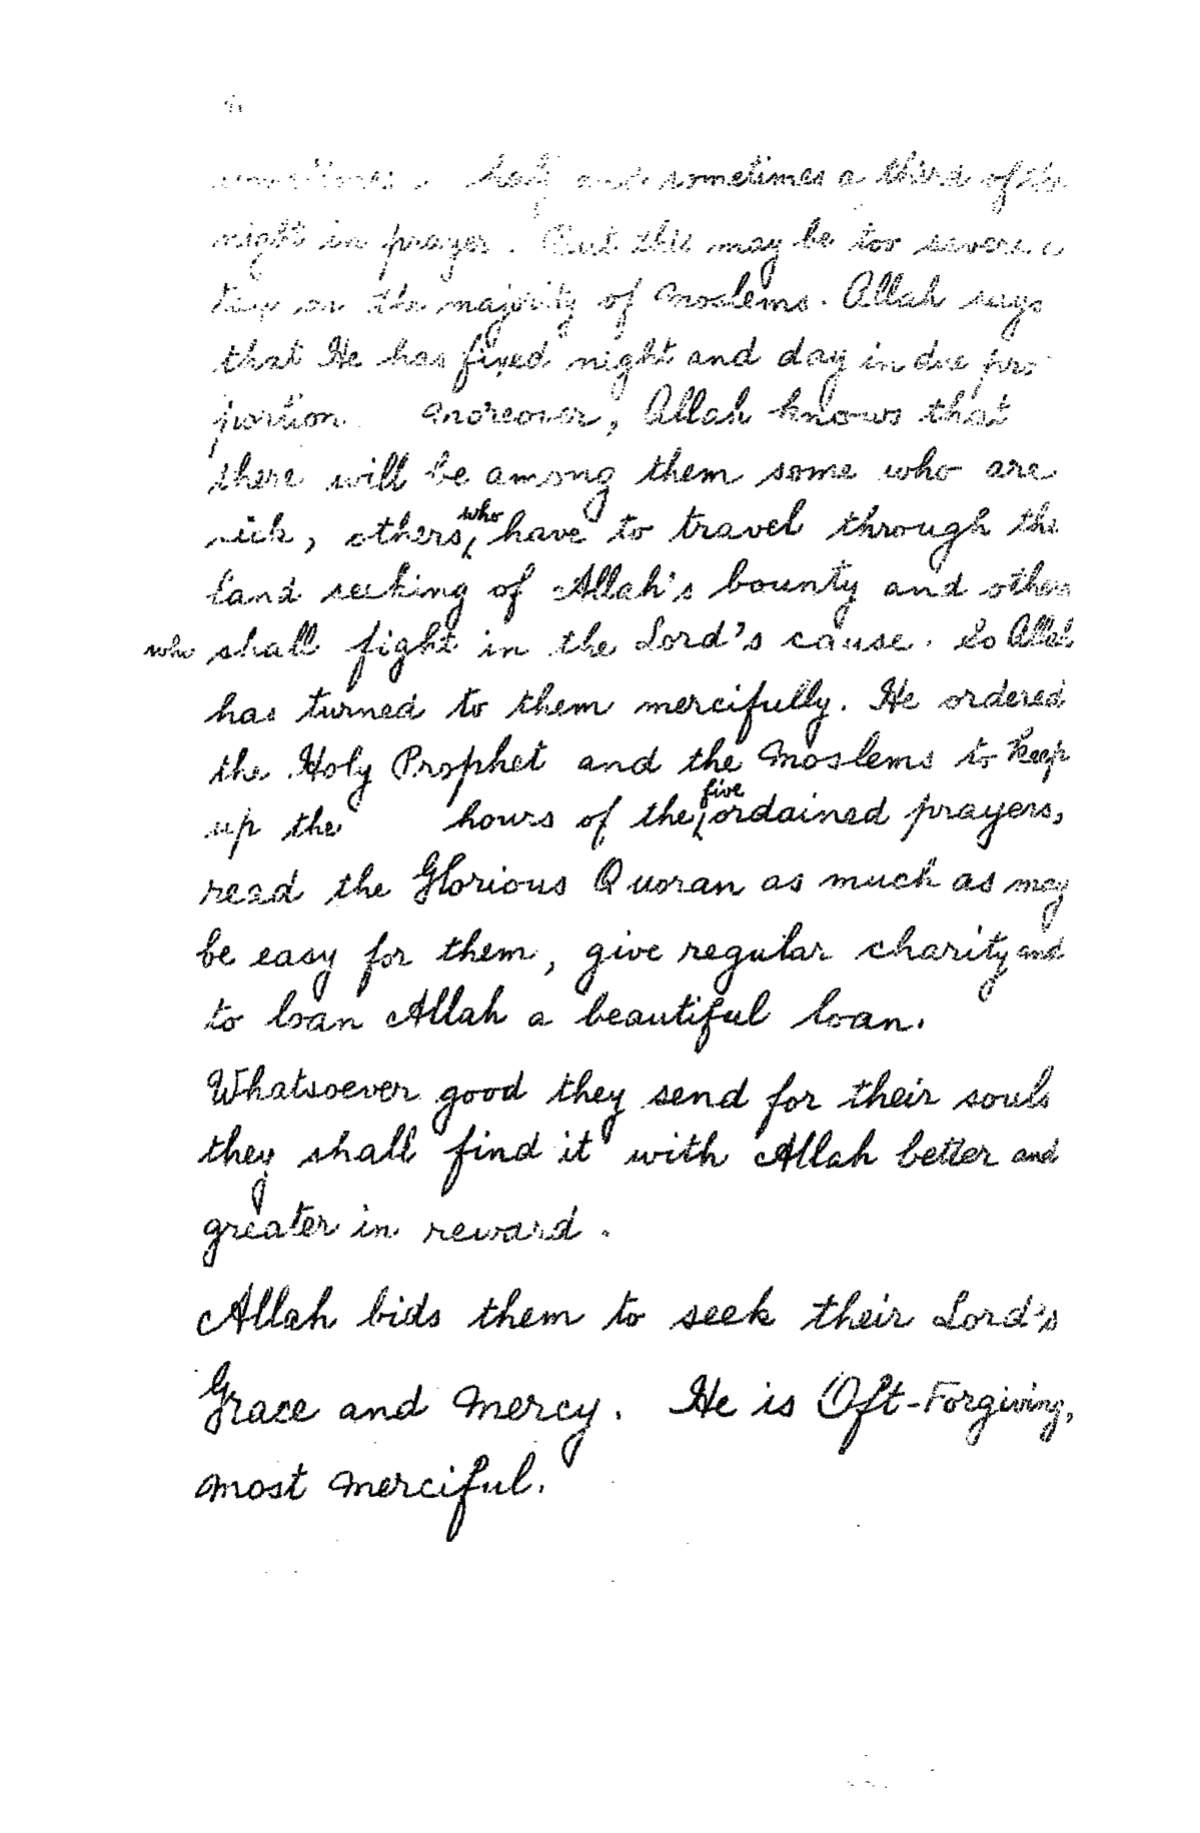 sometimes a half and sometimes a third of the
night in prayer. But this may be too severe a
tax on the majority of Moslems. Allah says
that He has fixed night and day in due pro-
portion. Moreover, Allah knows that
there will be among them some who are
sick, others who have to travel through the
land seeking of Allah's bounty and others
who shall fight in the Lord's cause. So Allah
has turned to them mercifully. He ordered
the Holy Prophet and the Moslems to keep
up the hours of the five ordained prayers,
read the Glorious Quoran as much as may
be easy for them, give regular charity and
to loan Allah a beautiful loan.
Whatsoever good they send for their souls
they shall find it with Allah better and
greater in reward.
Allah bids them to seek their Lord's
Grace and Mercy. He is Oft-Forgiving,
Most Merciful.